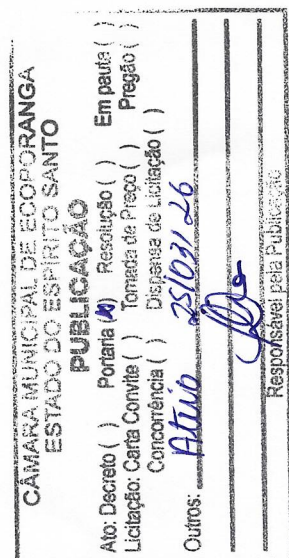 CÂMARA MUNICIPAL DE ECOPORANGA
ESTADO DO ESPIRITO SANTO
PUBLICAÇÃO
Ato: Decreto ( ) Portaria (x) Resolução ( ) Em pauta ( )
Licitação: Carta Convite ( ) Tomada de Preço ( ) Pregão ( )
Concorrência ( ) Dispensa de Licitação ( )
Outros: 25/03/26
Responsável pela Publicação